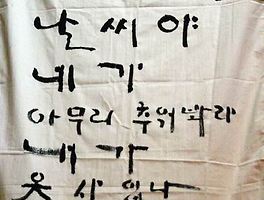 날씨야
네가
아무리 추워봐라
내가
옷 사입나